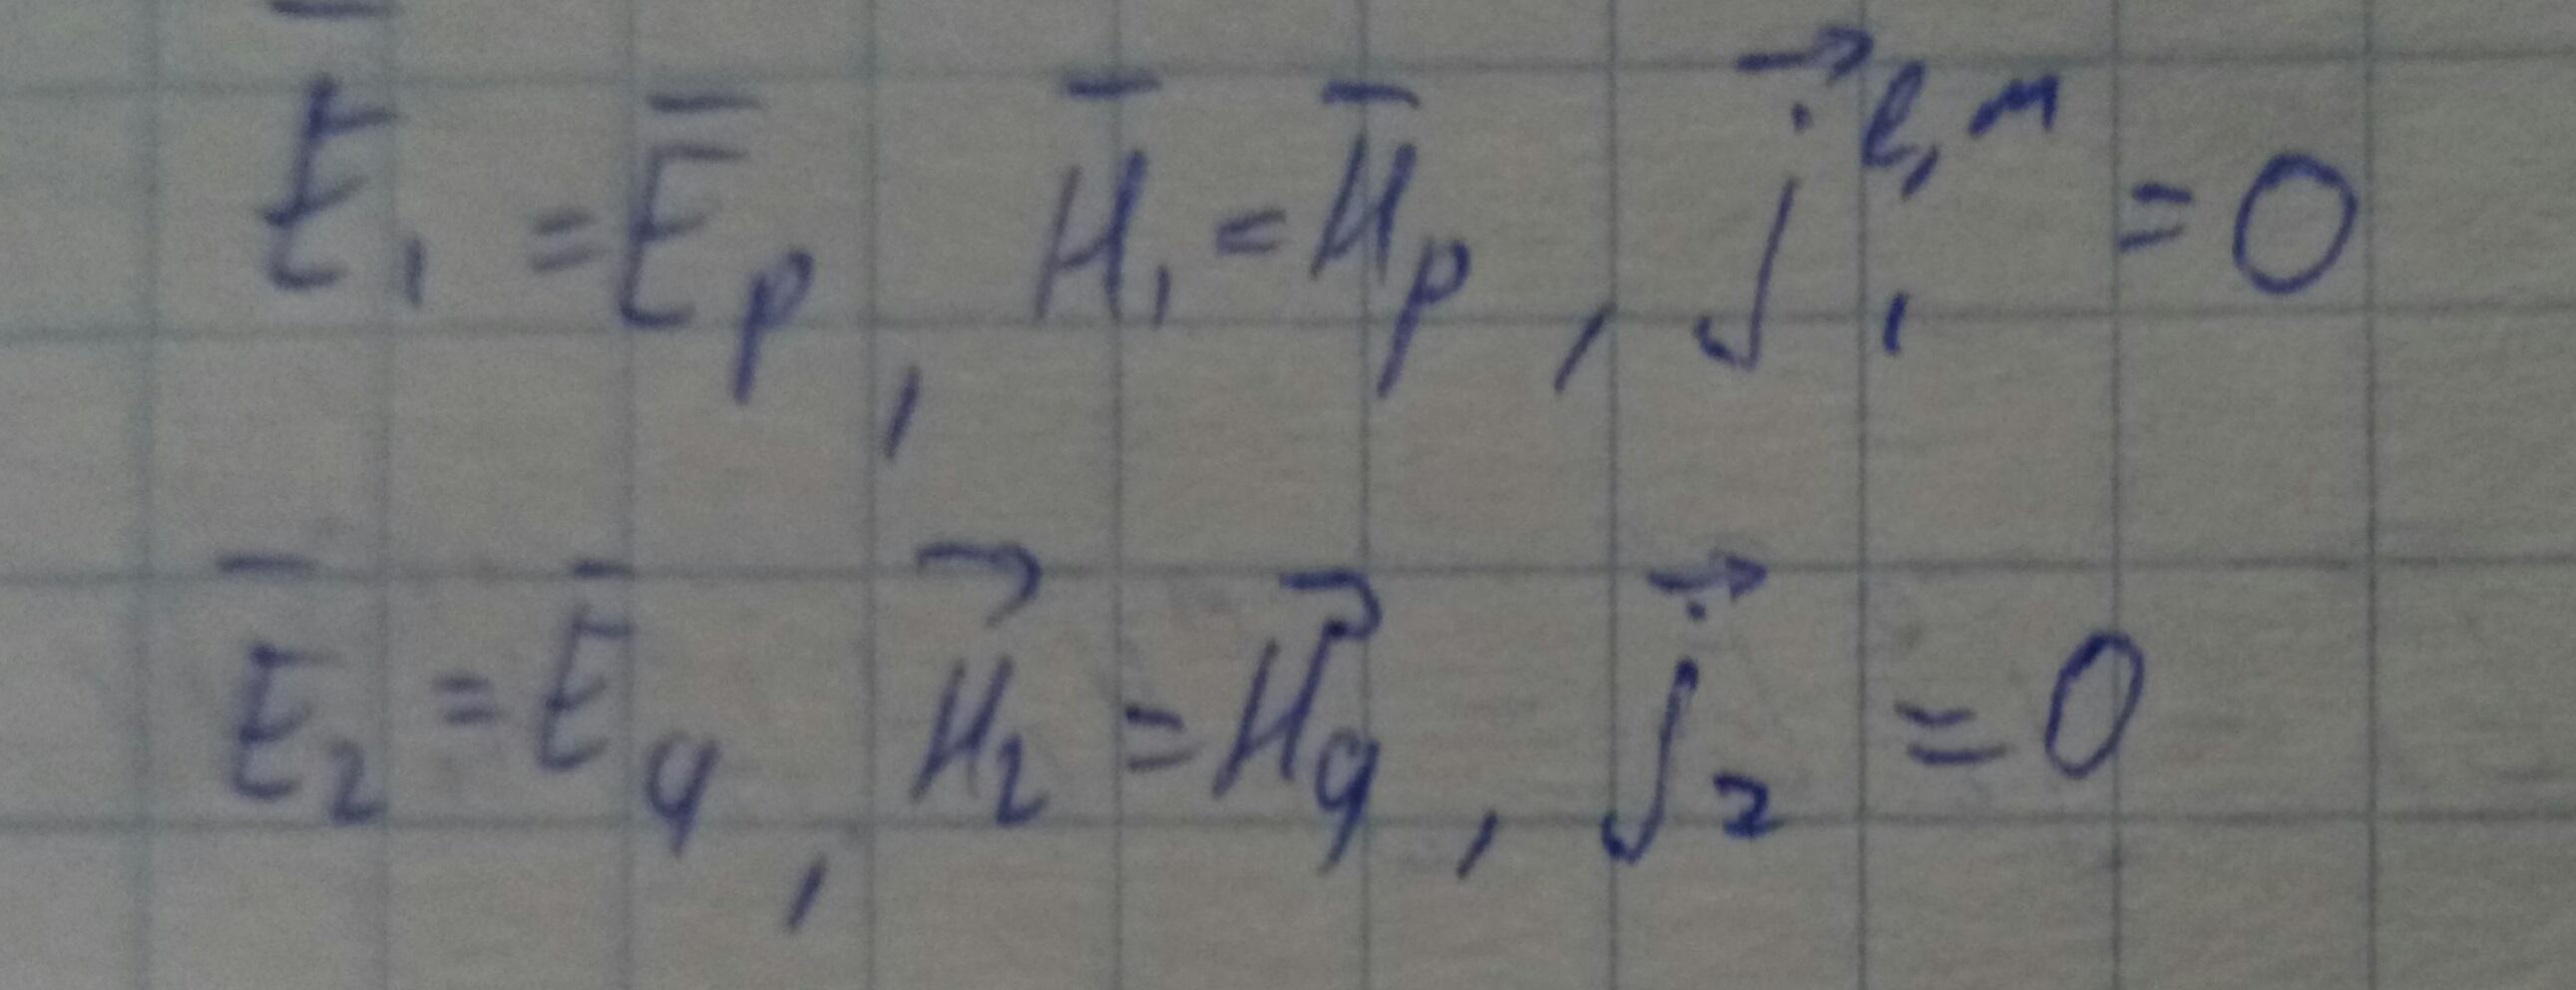 E̅₁ = E̅ₚ, H̅₁ = H̅ₚ, j⃗₁^{e,м} = 0
E̅₂ = E̅_q, H⃗₂ = H⃗_q, j⃗₂ = 0